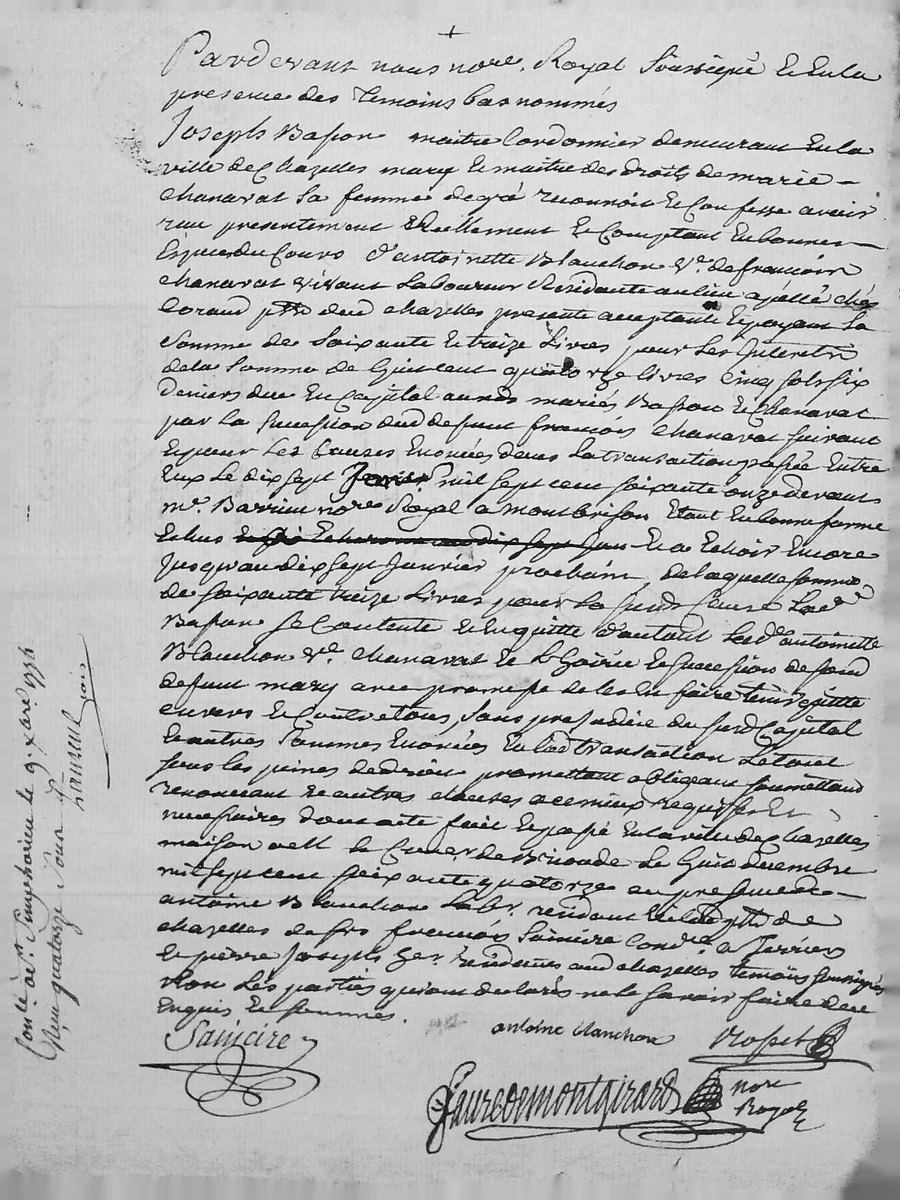 +
Pardevant nous nore. Royal Soussigné Et En la
presence des temoins bas nommés
Joseph Basson maitre Cordonnier demeurant En la
ville de Chazelles mary Et maitre des droits de marie
chanavat sa femme de gré reconnoit Et Confesse avoir
reçu presentement Reellement Et Comptant En bonnes
Especes du Cours d'antoinette Blanchon Ve. de françois
chanavat vivant Laboureur Residante au lieu appellé chés
Coraud psse dud chazelles presente acceptante Et payant La
Somme de Soixante Et traize Livres pour Les Interets
de la Somme de huit cent quatorze livres cinq sols six
deniers due En Capital auxds mariés Basson Et Chanavat
par la Succession dud defunt françois chanavat suivant
Et pour Les Causes Enoncées dans La transaction passée Entre
Eux Le dix sept Janvier mil sept cent soixante onze devant
me. Barrieu nore Royal a montbrison Etant En bonne forme
Echus Et a Echoir Encore
Jusqu'au dix sept Janvier prochain, de laquelle somme
de soixante treize Livres pour La susde Cause Led
Basson se Contente Et En quitte d'autant Lade antoinette
Blanchon Ve. chanavat Et L'hoirie Et succession de sond
defunt mary avec promesse de les En faire tenir quitte
envers Et Contre tous Sans prejudice du susd Capital
Et autres Sommes Enoncées En lad transaction Le tout
sous les peines de droit promettant obligeant soumettand
renonceant Et autres clauses a ce mieux requises Et
necessaires dont acte fait Et passé En la ville de chazelles
maison de Le huit decembre
mil sept cent soixante quatorze en presence
antoine Blanchon Labr. residant En lad psse de
chazelles françois Saincire
Et pierre Joseph residents aud chazelles temoins soussignés
non Les parties qui ont declarés ne le savoir faire de ce
Enquis Et sommés.
Saincire antoine blanchon
fauredemontgirard nore
Royal
Conlé à St. Simphorien le 9. xbre. 1774
Reçu quatorze sous